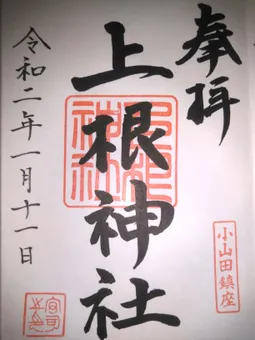 奉拝
小山田鎮座
上根神社
令和二年一月十一日